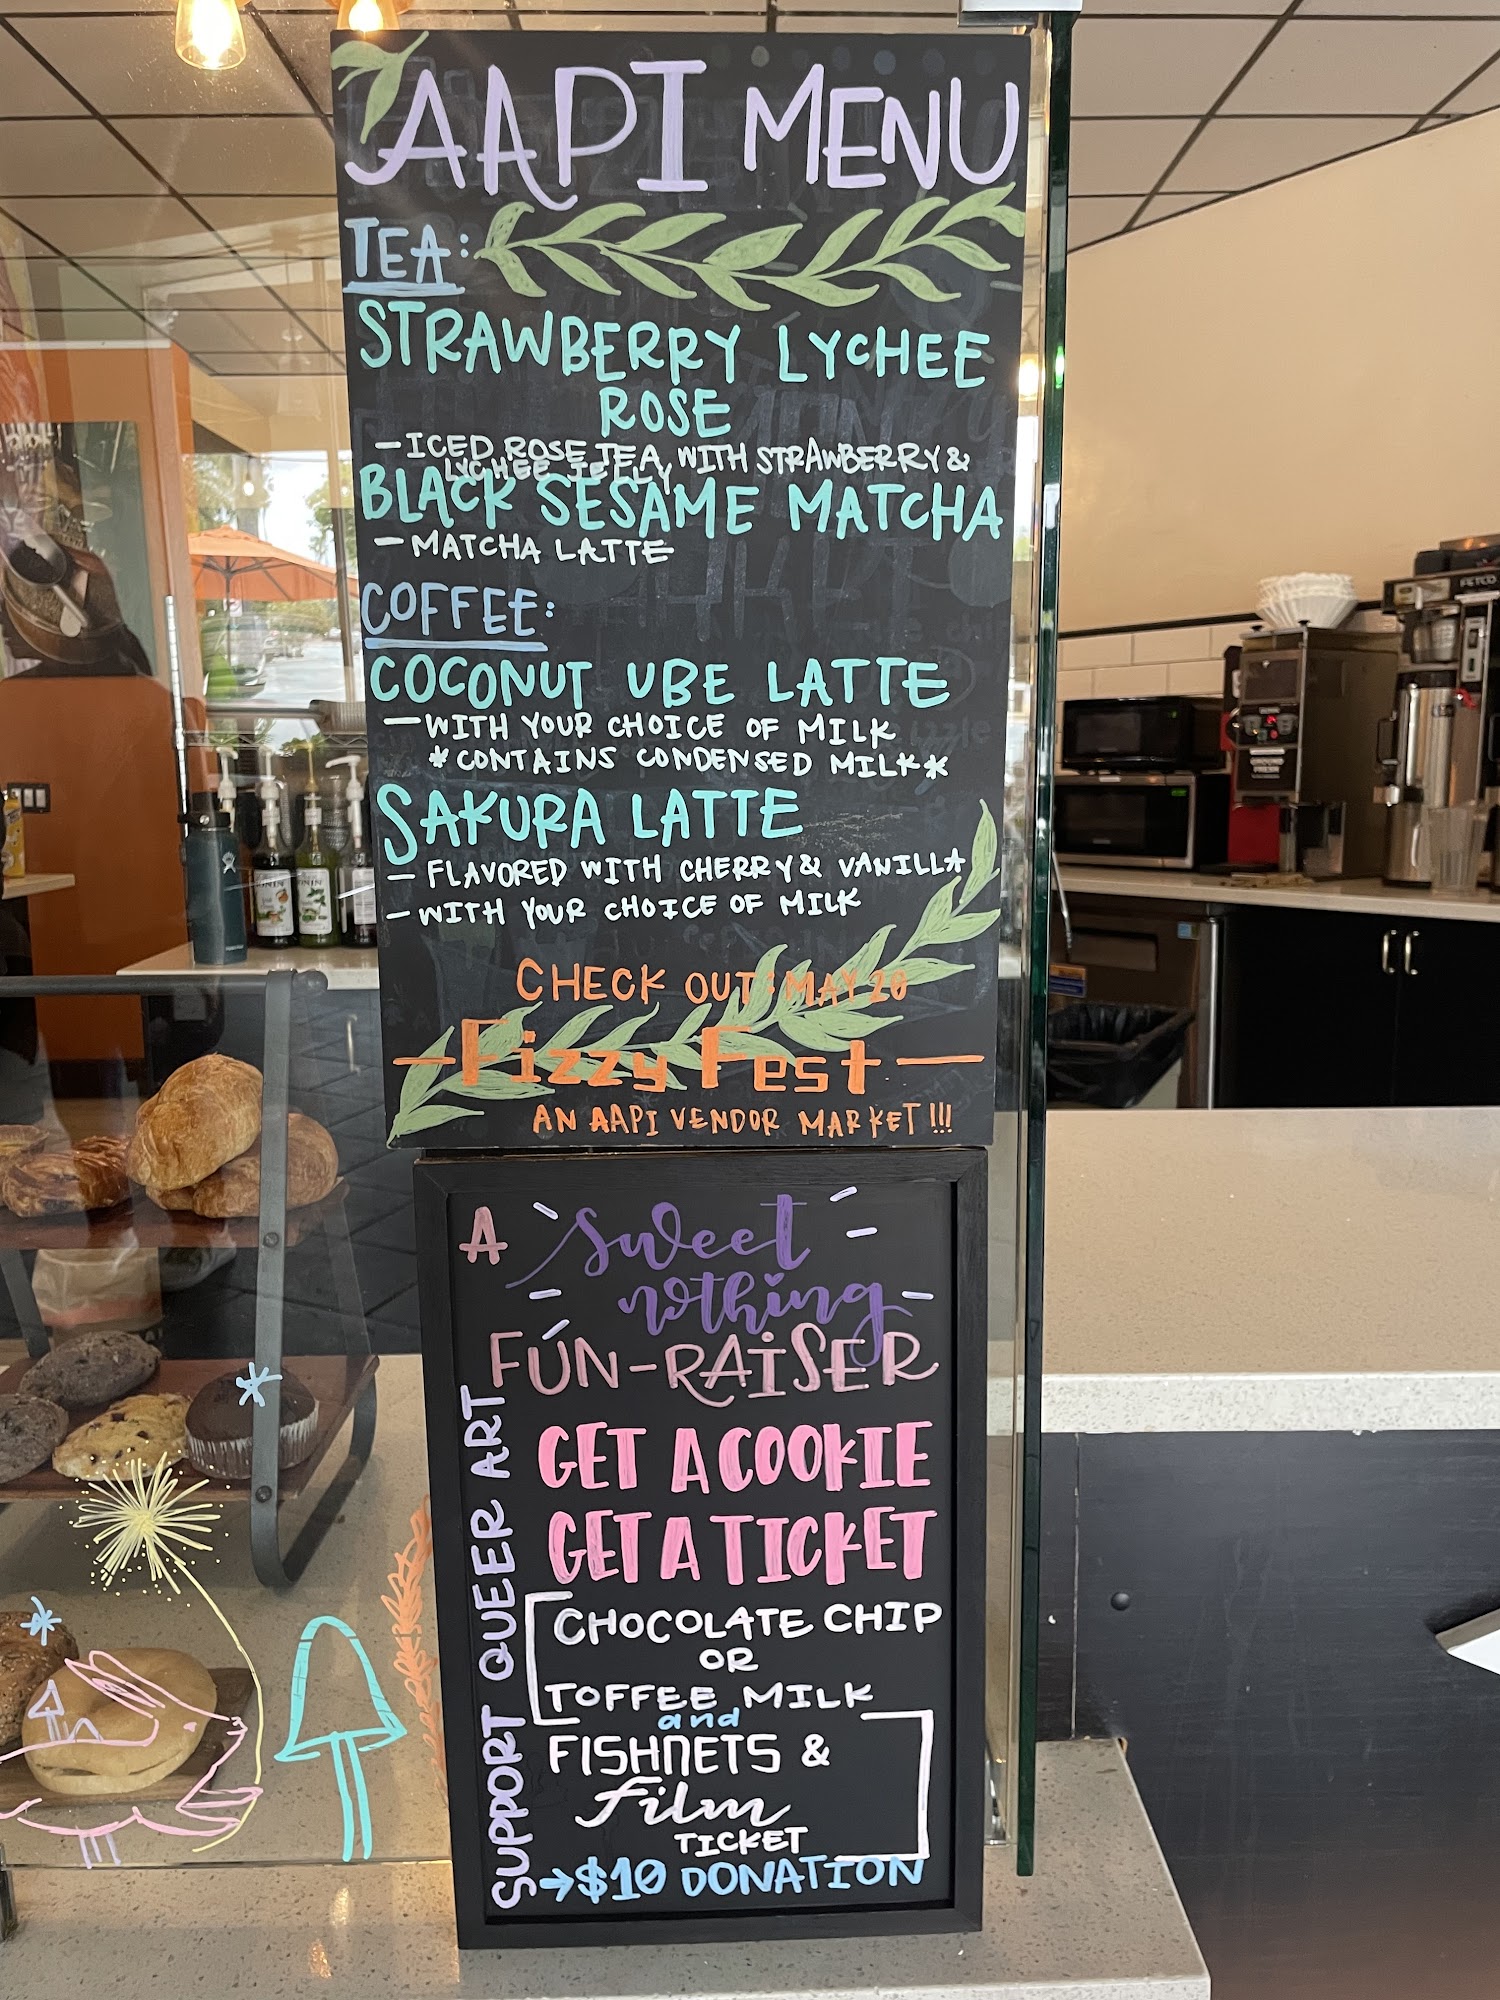 AAPI MENU
TEA:
STRAWBERRY LYCHEE
ROSE
- ICED ROSE TEA WITH STRAWBERRY &
LYCHEE JELLY
BLACK SESAME MATCHA
- MATCHA LATTE
COFFEE:
COCONUT UBE LATTE
- WITH YOUR CHOICE OF MILK
*CONTAINS CONDENSED MILK*
SAKURA LATTE
- FLAVORED WITH CHERRY & VANILLA
- WITH YOUR CHOICE OF MILK
CHECK OUT: MAY 20
- Fizzy Fest -
AN AAPI VENDOR MARKET!!!
A sweet
nothing
FUN-RAISER
SUPPORT QUEER ART
GET A COOKIE
GET A TICKET
CHOCOLATE CHIP
OR
TOFFEE MILK
and
FISHNETS &
film
TICKET
→$10 DONATION
FETCO
MONIN
MONIN